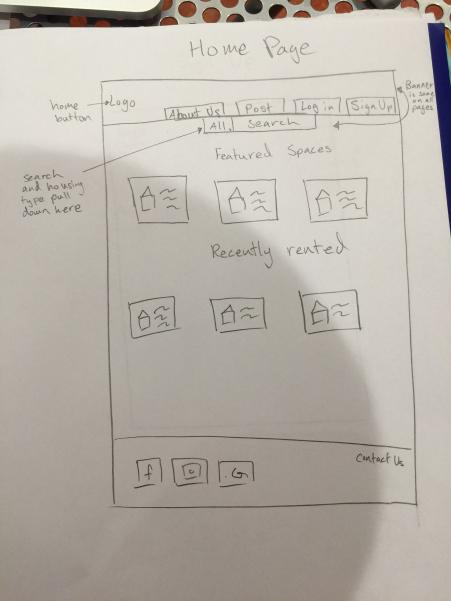 Home Page
home
button
Logo
About Us
Post
Log in
Sign Up
Banner
is same
on all
pages
All
Search
search
and housing
type pull
down here
Featured Spaces
Recently rented
Contact Us
f
G